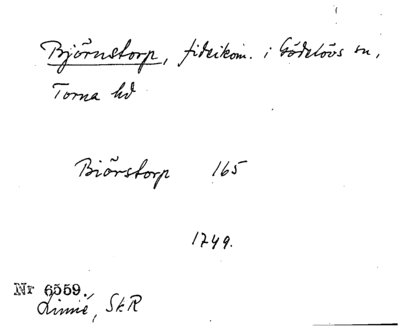 Björnstorp, fideikom. i Gödelövs sn,
Torna hd
Biörstorp 165
1749.
Nr 6559.
Linné, SkR